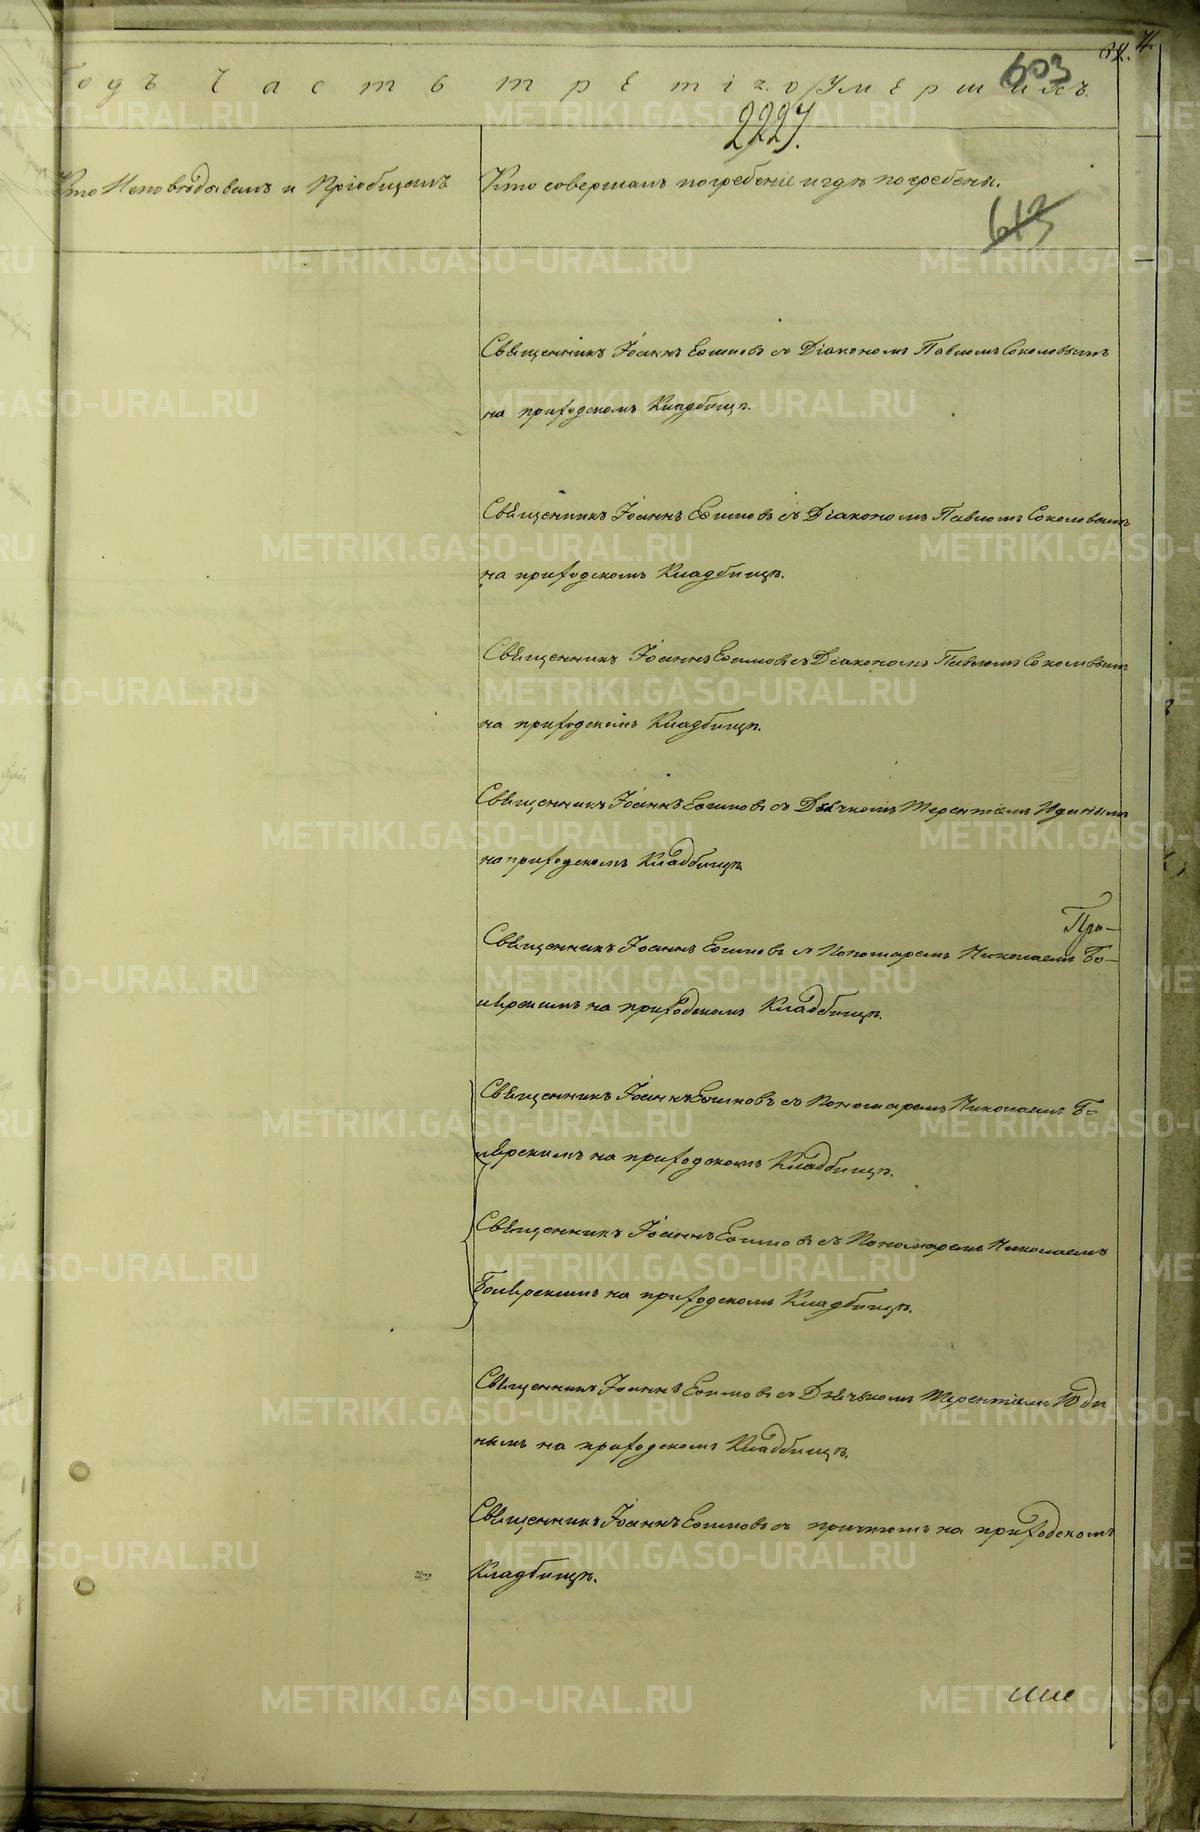 годъ Часть третія О Умершихъ.
603
2227.
Кто Исповѣдывалъ и Пріобщалъ
Кто совершалъ погребеніе и гдѣ погребены.
613
Священникъ Іоаннъ Ефимовъ съ Діакономъ Павломъ Соколовымъ
на приходскомъ Кладбищѣ.
Священникъ Іоаннъ Ефимовъ съ Діакономъ Павломъ Соколовымъ
на приходскомъ Кладбищѣ.
Священникъ Іоаннъ Ефимовъ съ Діакономъ Павломъ Соколовымъ
на приходскомъ Кладбищѣ.
Священникъ Іоаннъ Ефимовъ съ Дьячкомъ Терентіемъ Юдинымъ
на приходскомъ Кладбищѣ
Священникъ Іоаннъ Ефимовъ съ Пономаремъ Николаемъ
на приходскомъ Кладбищѣ.
Священникъ Іоаннъ Ефимовъ съ Пономаремъ Николаемъ
на приходскомъ Кладбищѣ.
Священникъ Іоаннъ Ефимовъ съ Пономаремъ Николаемъ
на приходскомъ Кладбищѣ.
Священникъ Іоаннъ Ефимовъ съ Дьячкомъ Терентіемъ Юди
нымъ на приходскомъ Кладбищѣ.
Священникъ Іоаннъ Ефимовъ съ причтомъ на приходскомъ
Кладбищѣ.
METRIKI.GASO-URAL.RU